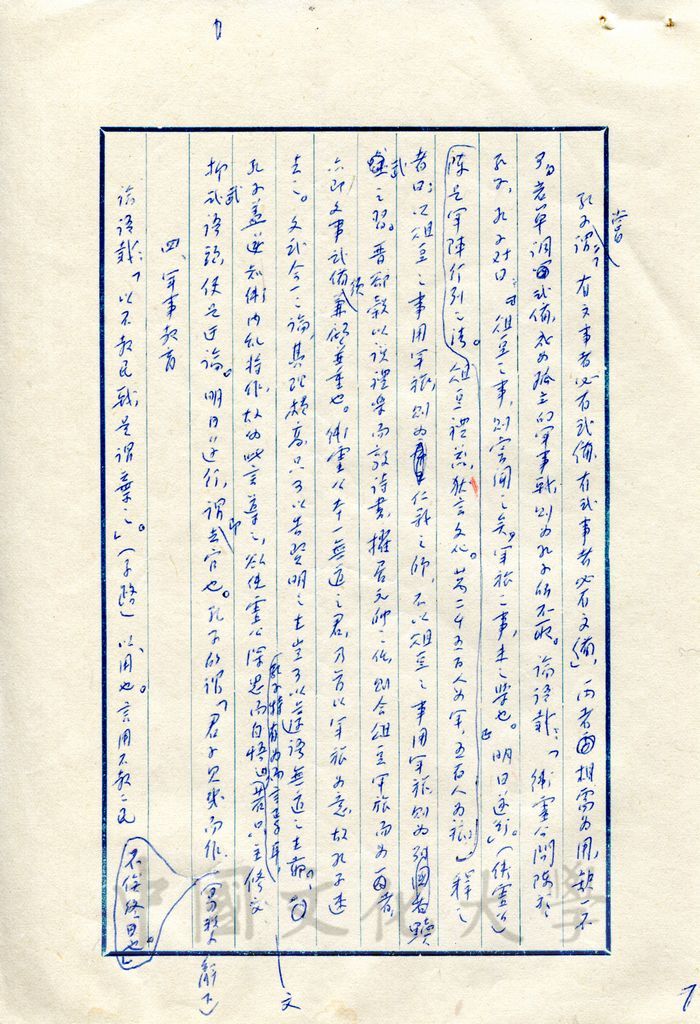 孔子嘗謂:「有文事者必有武備,有武事者必有文備」,兩者相需為用,缺一不
可。若單調武備,或如孤立的軍事戰,則為孔子所不取。論語載:「衛靈公問陳於
孔子,孔子對曰:『俎豆之事,則嘗聞之矣,軍旅之事,未之學也。』明日遂行。」(衛靈公)
陳是軍陣行列之法。俎豆禮器,猶言文化。萬二千五百人為軍,五百人為旅」釋之
者曰:以俎豆之事用軍旅,則為仁義之師,不以俎豆之事用軍旅則為黷
武之習。晉郤縠以說禮樂而敦詩書,擢居元帥之任,則合俎豆軍旅而為一者
六即文事武備須兼顧並重也。衛靈公本一無道之君,乃首以軍旅為意,故孔子速
去之。文武合一之論,其理頗高,只可以告賢明之主豈可以語無道之主前。
孔子蓋逆知衛內亂將作,故為此言導之,欲使靈公深思而自悟
孔子特有為而言
主修文
抑武語頭,便是迂論。明日遂行,謂即去官也。孔子所謂「君子見幾而作,
不俟終日也」。
(易繫辭下)
四、軍事教育
論語載:「以不教民戰,是謂棄之。」(子路)以,用也。言用不教之民
7
中國文化大學